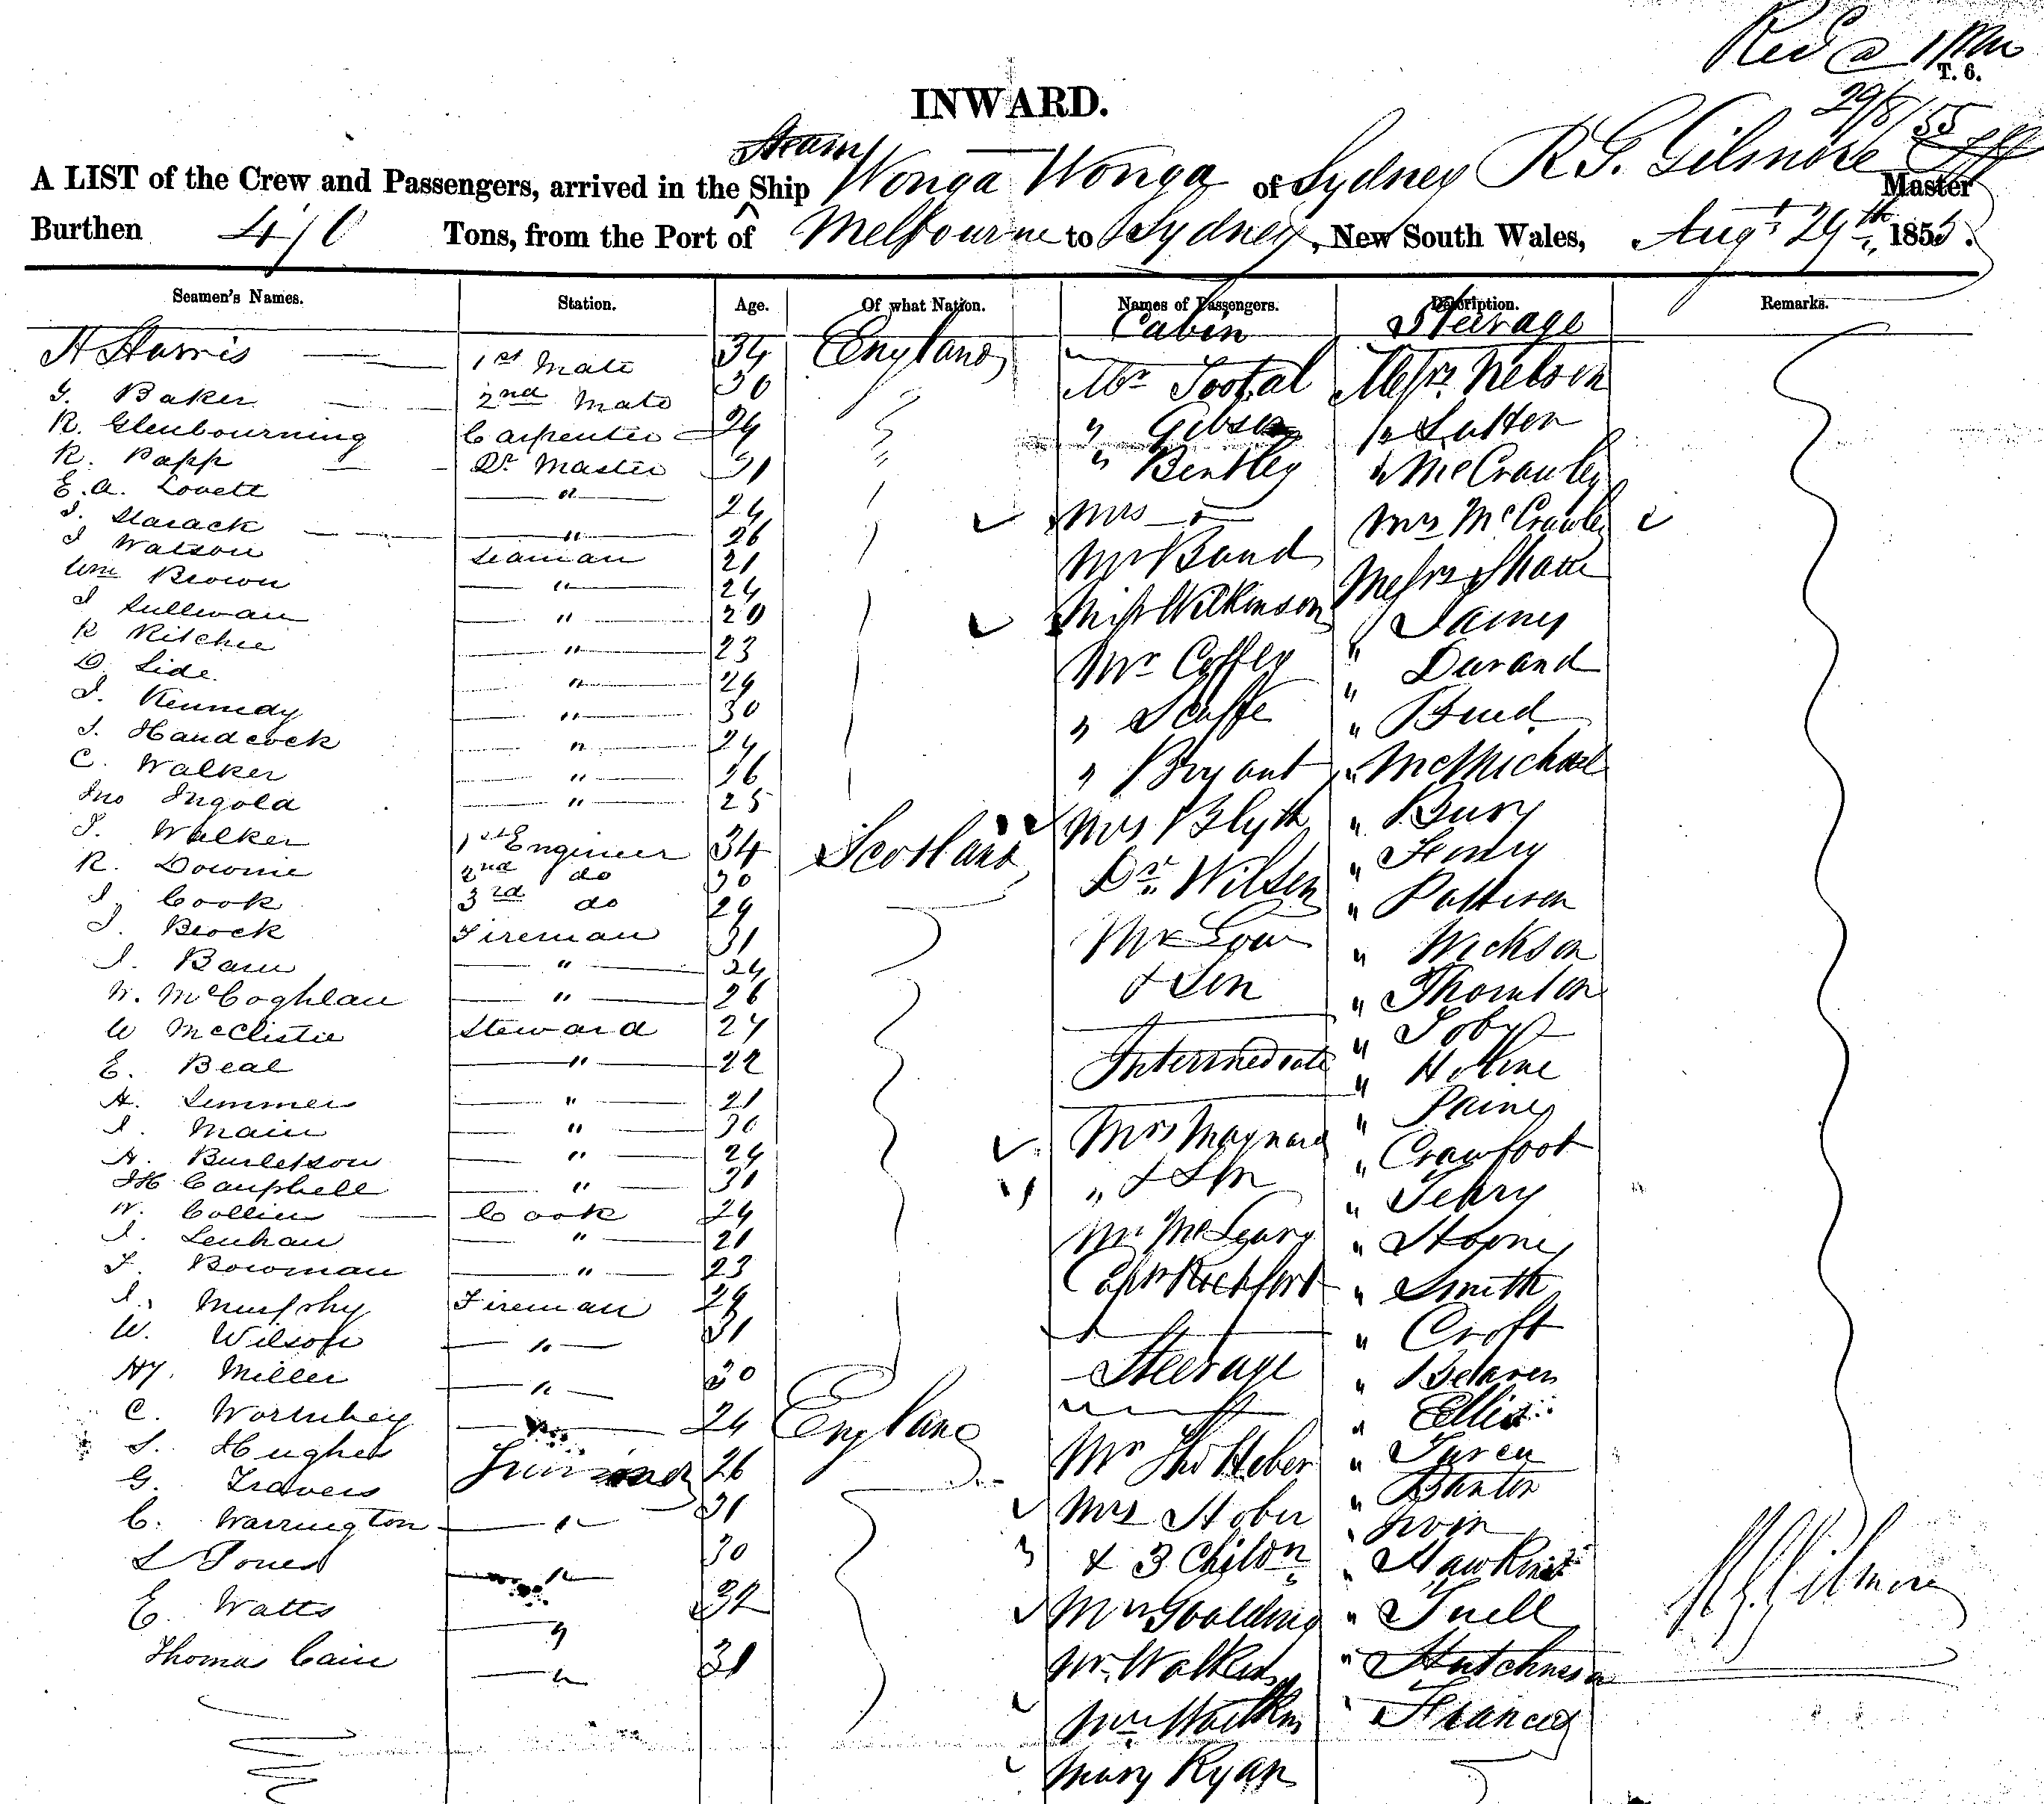 Recd @ 1 PM
T. 6.
29/8/55
INWARD.
Steam
A LIST of the Crew and Passengers, arrived in the Ship Wonga Wonga of Sydney R G. Gilmore Master
Burthen 410 Tons, from the Port of Melbourne to Sydney, New South Wales, Augt 29th 1855.
Seamen's Names. Station. Age. Of what Nation. Names of Passengers. Description. Remarks.
Cabin Steerage
H Harris 1st Mate 34 England Mr Tootal Messrs Nelson
G. Baker 2nd Mate 30 " Gibson " Sutton
R. Glenbourning Carpenter 24 " Bentley " McCrawley
R. Papp Qr Master 31 Mrs " Mrs McCrawley
E. A. Lovett " 24 Mr Band Messrs Shaw
J. Starack " 26 Miss Wilkinson " James
J Watson Seaman 21 Mr Coffey " Durand
Wm Brown " 24 " Scaffe " Bird
J Sullivan " 20 " Bryant " McMichael
R Ritchie " 23 Mrs Blyth " Bury
D. Side " 24 Dr Wilson " Henry
J. Kennedy " 30 Mr Low " Pattison
J. Handcock " 24 & Son " Wickson
C. Walker " 26 Intermediate " Thornton
Jno Ingold " 25 Mrs Maynard " Toby
J. Walker 1st Engineer 34 Scotland " & Son
R. Downie 2nd do 30 Mr McLeary " Paine
J. Cook 3rd do 29 Captn Rochfort " Crawfoot
J. Brock Fireman 31 Steerage " Terry
J. Bain " 24 Mr Thos Heber
W. McCoghlan " 26 Mrs Heber " Smith
W McClistie Steward 24 & 3 Childn " Croft
E. Beal " 22 Mrs Goulding
H. Simmes " 21 Mr Watkins " Ellis
J. Main " 30 Mrs Watkins
H. Burletson " 24 Mary Ryan " Banton
JH Campbell " 31 " Irvin
W. Collier Cook 24 " Hawkins
J. Lenhan " 21 " Tuell
F. Bowman " 23 " Hutchinson
J. Murphy Fireman 29 " Francis
W. Wilson " 31
Hy. Miller " 30
C. Wormbey " 24 England
S. Hughes Trimmer 26
G. Travers 31
C. Warrington " 30
L Jones " 32
E. Watts "
Thomas Cain " 31
R G Gilmore